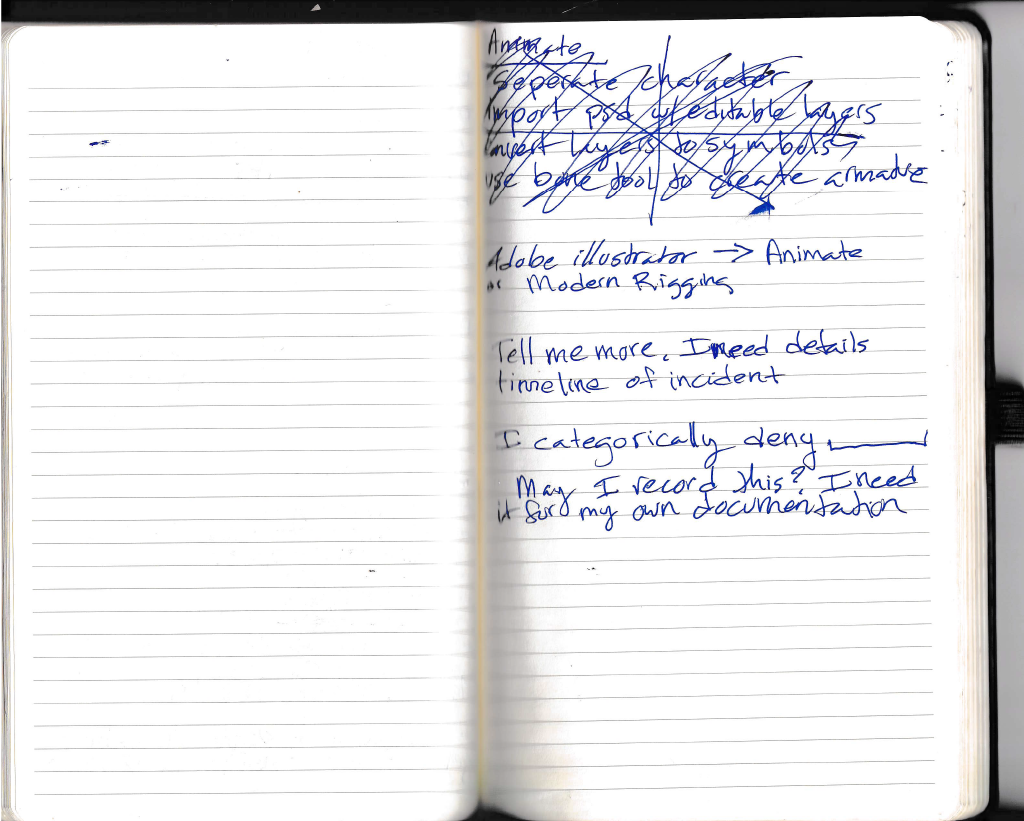 Animate
seperate character
import psd w/ editable layers
convert layers to symbols
use bone tool to create armature
Adobe illustrator -> Animate
Modern Rigging
Tell me more. I need details
timeline of incident
I categorically deny ______
May I record this? I need
it for my own documentation